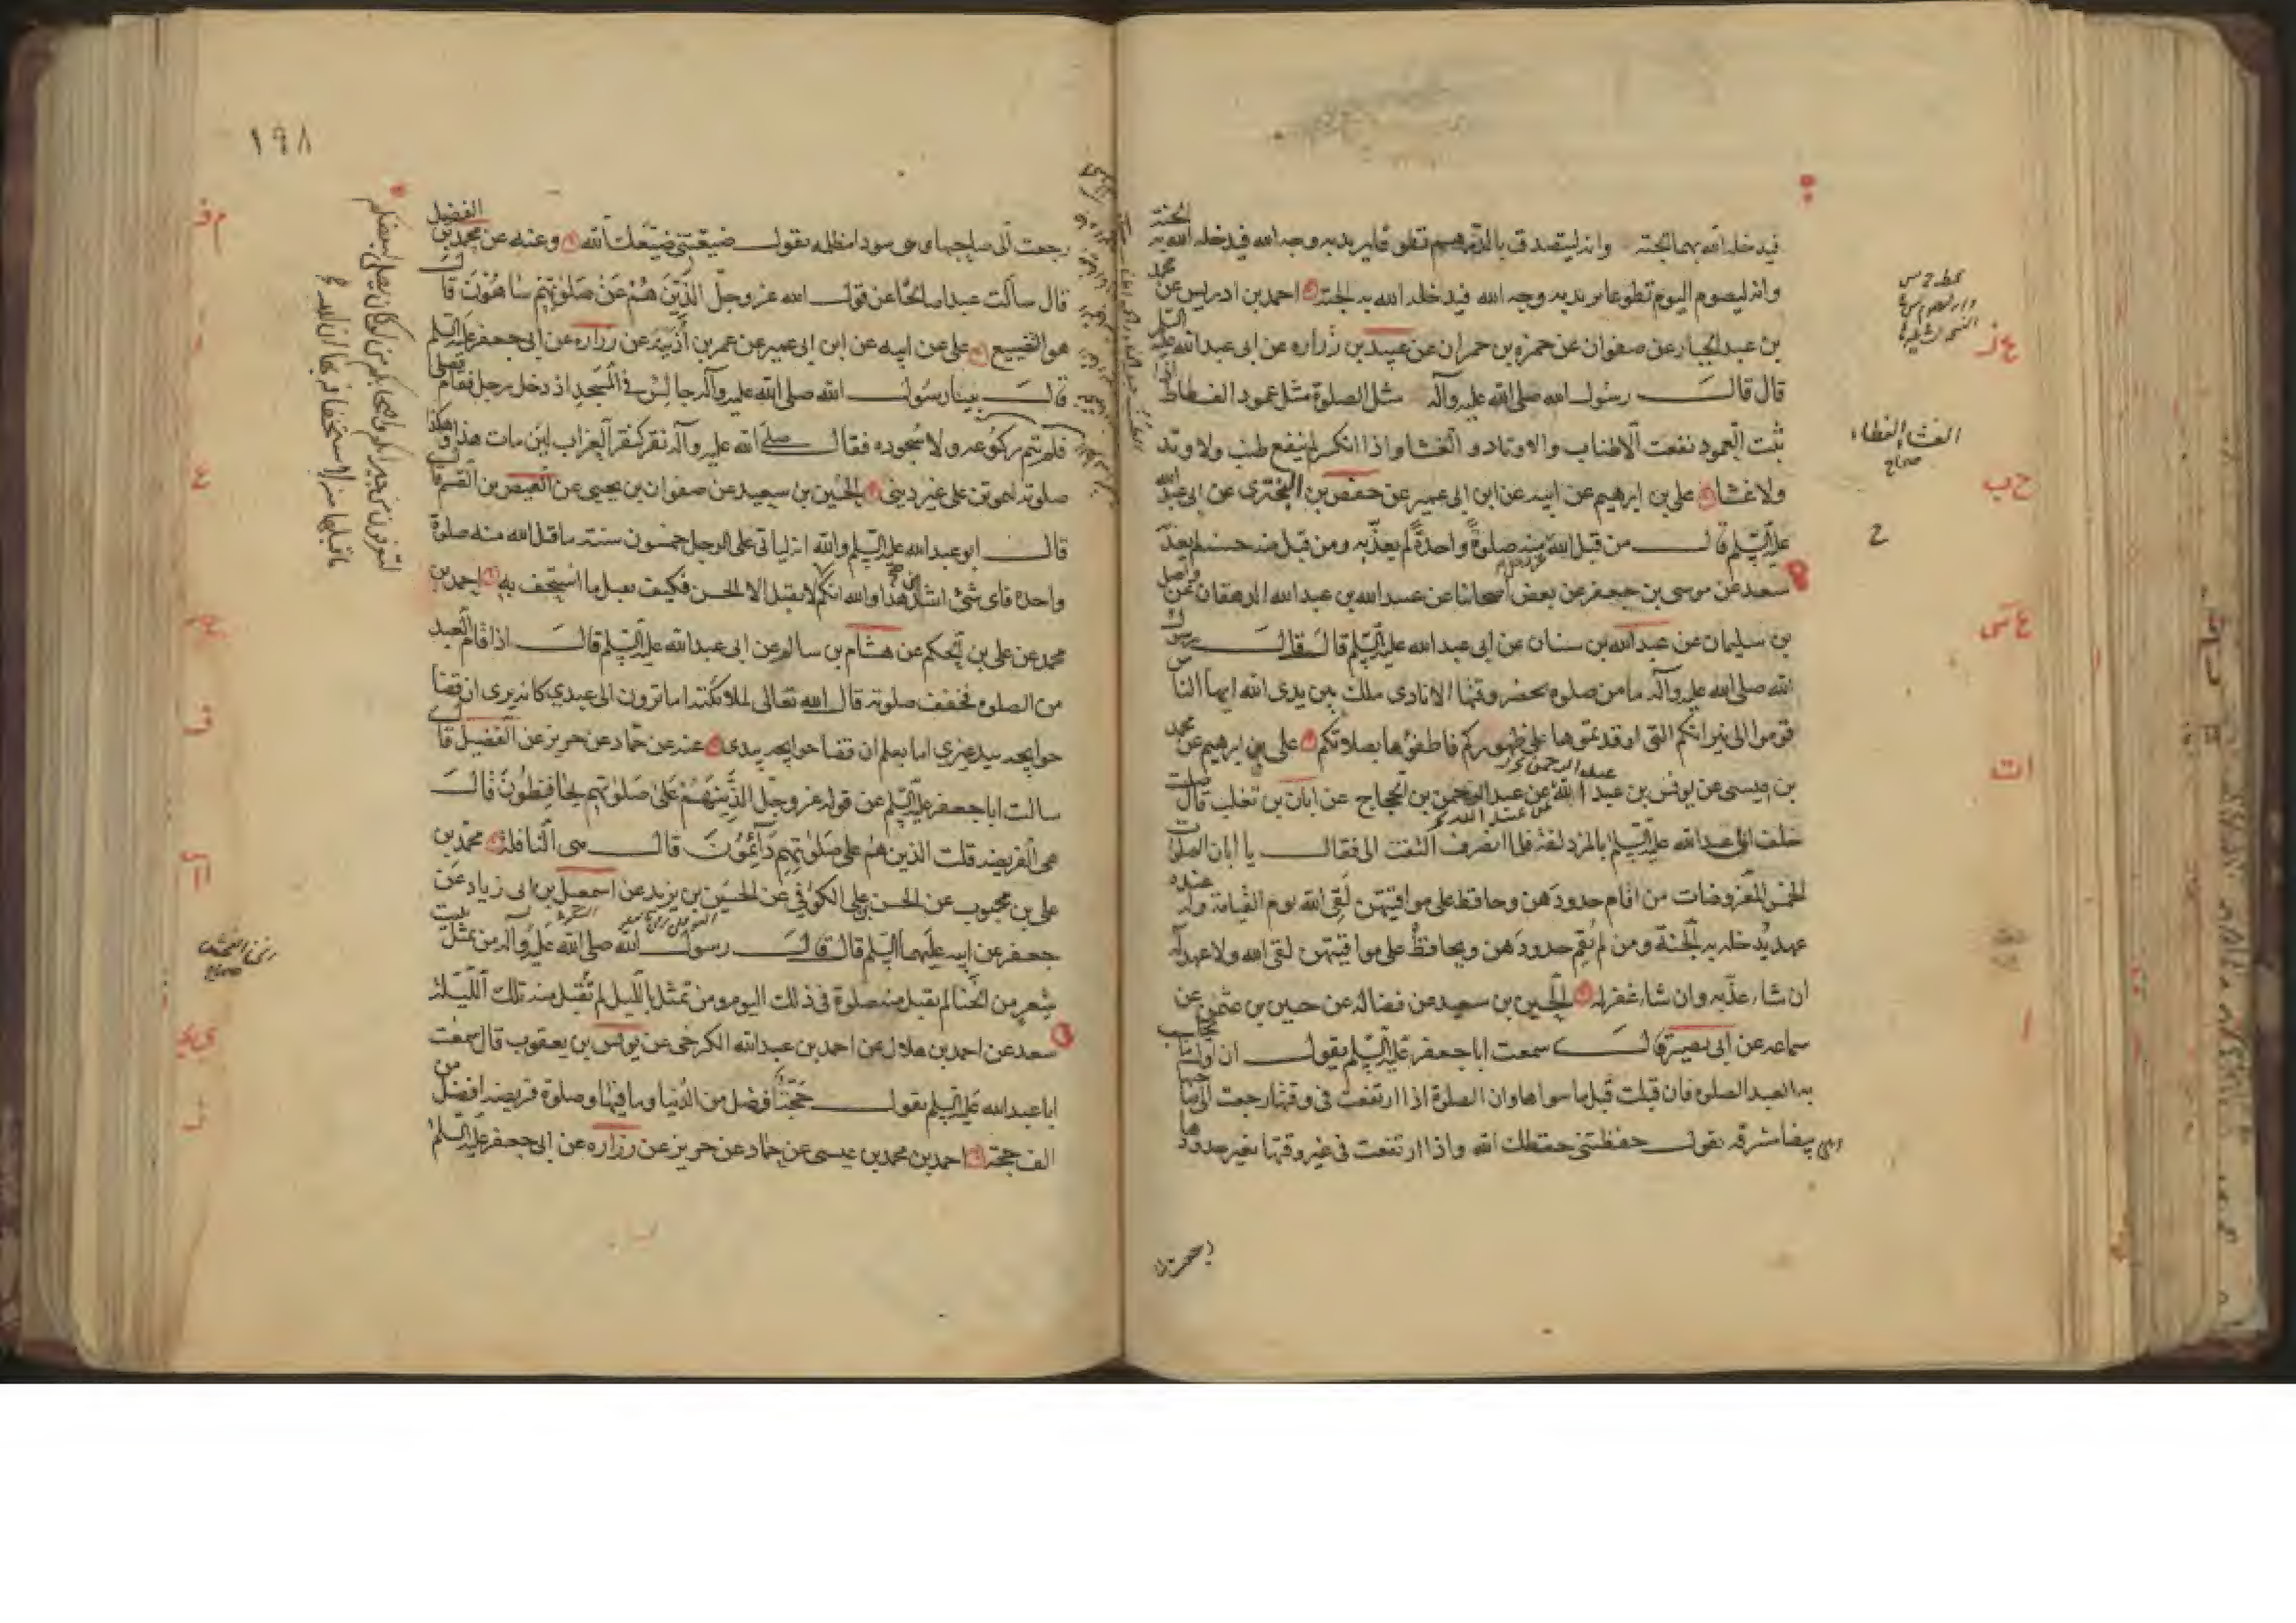 فيدخله الله بهما الجنة وانه ليتصدق بالدرهم تطوعا يريد به وجه الله فيدخله الله به الجنة
وانه ليصوم اليوم تطوعا يريد به وجه الله فيدخله الله به الجنة احمد بن ادريس عن محمد
بن عبد الجبار عن صفوان عن حمزه بن حمران عن عبيد بن زراره عن ابى عبد الله عليه السلم
قال قال رسول الله صلى الله عليه وآله مثل الصلوة مثل عمود الفسطاط اذا
ثبت العمود نفعت الاطناب والاوتاد والغشا واذا انكسر لم ينفع طنب ولا وتد
ولا غشا على بن ابرهيم عن ابيه عن ابن ابى عمير عن حفص بن البخترى عن ابى عبد الله
عليه السلم قال من قبل الله منه صلوة واحدة لم يعذبه ومن قبل منه حسنه لم يعذبه
سعد عن موسى بن جعفر عن بعض اصحابنا عن عبيد الله بن عبد الله الدهقان عن واصل
بن سليمان عن عبد الله بن سنان عن ابى عبد الله عليه السلم قال قال رسول
الله صلى الله عليه وآله ما من صلوه يحضر وقتها الا نادى ملك بين يدى الله ايها الناس
قوموا الى نيرانكم التى اوقدتموها على ظهوركم فاطفئوها بصلاتكم على بن ابرهيم عن محمد
بن عيسى عن يونس بن عبد الرحمن عن عبد الرحمن بن الحجاج عن ابان بن تغلب قال صليت
خلف ابى عبد الله عليه السلم بالمزدلفة فلما انصرف التفت الى فقال يا ابان الصلوات
الخمس المفروضات من اقام حدودهن وحافظ على مواقيتهن لقى الله يوم القيامة وله عنده
عهد يدخله به الجنة ومن لم يقم حدودهن ويحافظ على مواقيتهن لقى الله ولا عهد له
ان شاء عذبه وان شاء غفر له الحسين بن سعيد عن فضاله عن حسين بن عثمن عن
سماعه عن ابى بصير قال سمعت ابا جعفر عليه السلم يقول ان اول ما يحاسب
به العبد الصلوه فان قبلت قبل ما سواها وان الصلوة اذا ارتفعت فى وقتها رجعت الى صاحبها
وهى بيضا مشرقه تقول حفظتنى حفظك الله واذا ارتفعت فى غير وقتها بغير حدودها
الغشاء الغطاء
صحاح
ح
رجعت
١٩٨
رجعت الى صاحبها وهى سودا مظلمه تقول ضيعتنى ضيعك الله وعنه عن محمد بن الفضيل
قال سألت عبدا صالحا عن قول الله عز وجل الذين هم عن صلوتهم ساهون قال
هو التضييع على عن ابيه عن ابن ابى عمير عن عمر بن اذينه عن زراره عن ابى جعفر عليه السلم
قال بينا رسول الله صلى الله عليه وآله جالس فى المسجد اذ دخل رجل فقام فصلى
فلم يتم ركوعه ولا سجوده فقال صلى الله عليه وآله نقر كنقر الغراب لئن مات هذا وهكذا
صلوته ليموتن على غير دينى الحسين بن سعيد عن صفوان بن يحيى عن العيص بن القسم قال
قال ابو عبد الله عليه السلم والله انه ليأتى على الرجل خمسون سنة ما قبل الله منه صلوة
واحده فاى شئ اشد من هذا والله انكم لا يقبل الا الحسن فكيف يقبل ما استخف به احمد بن
محمد عن على بن الحكم عن هشام بن سالم عن ابى عبد الله عليه السلم قال اذا قام العبد
من الصلوه فخفف صلوته قال الله تعالى لملائكته اما ترون الى عبدى كانه يرى ان قضا
حوايجه بيد غيرى اما يعلم ان قضا حوايجه بيدى عنه عن حماد عن حريز عن الفضيل قال
سالت ابا جعفر عليه السلم عن قوله عز وجل الذين هم على صلوتهم يحافظون قال
هى الفريضه قلت الذين هم على صلوتهم دائمون قال هى النافلة محمد بن
على بن محبوب عن الحسن بن على الكوفى عن الحسين بن يزيد عن اسمعيل بن ابى زياد عن
جعفر عن ابيه عليهما السلم قال قال رسول الله صلى الله عليه وآله من تمثل ببيت
شعر من الخنا لم يقبل منه صلوة فى ذلك اليوم ومن تمثل بالليل لم تقبل منه تلك الليلة
سعد عن احمد بن هلال عن احمد بن عبد الله الكرخى عن يونس بن يعقوب قال سمعت
ابا عبد الله عليه السلم يقول حجة افضل من الدنيا وما فيها وصلوة فريضه افضل من
الف حجة احمد بن محمد بن عيسى عن حماد عن حريز عن زراره عن ابى جعفر عليه السلم
الخنا الفحش
صحاح